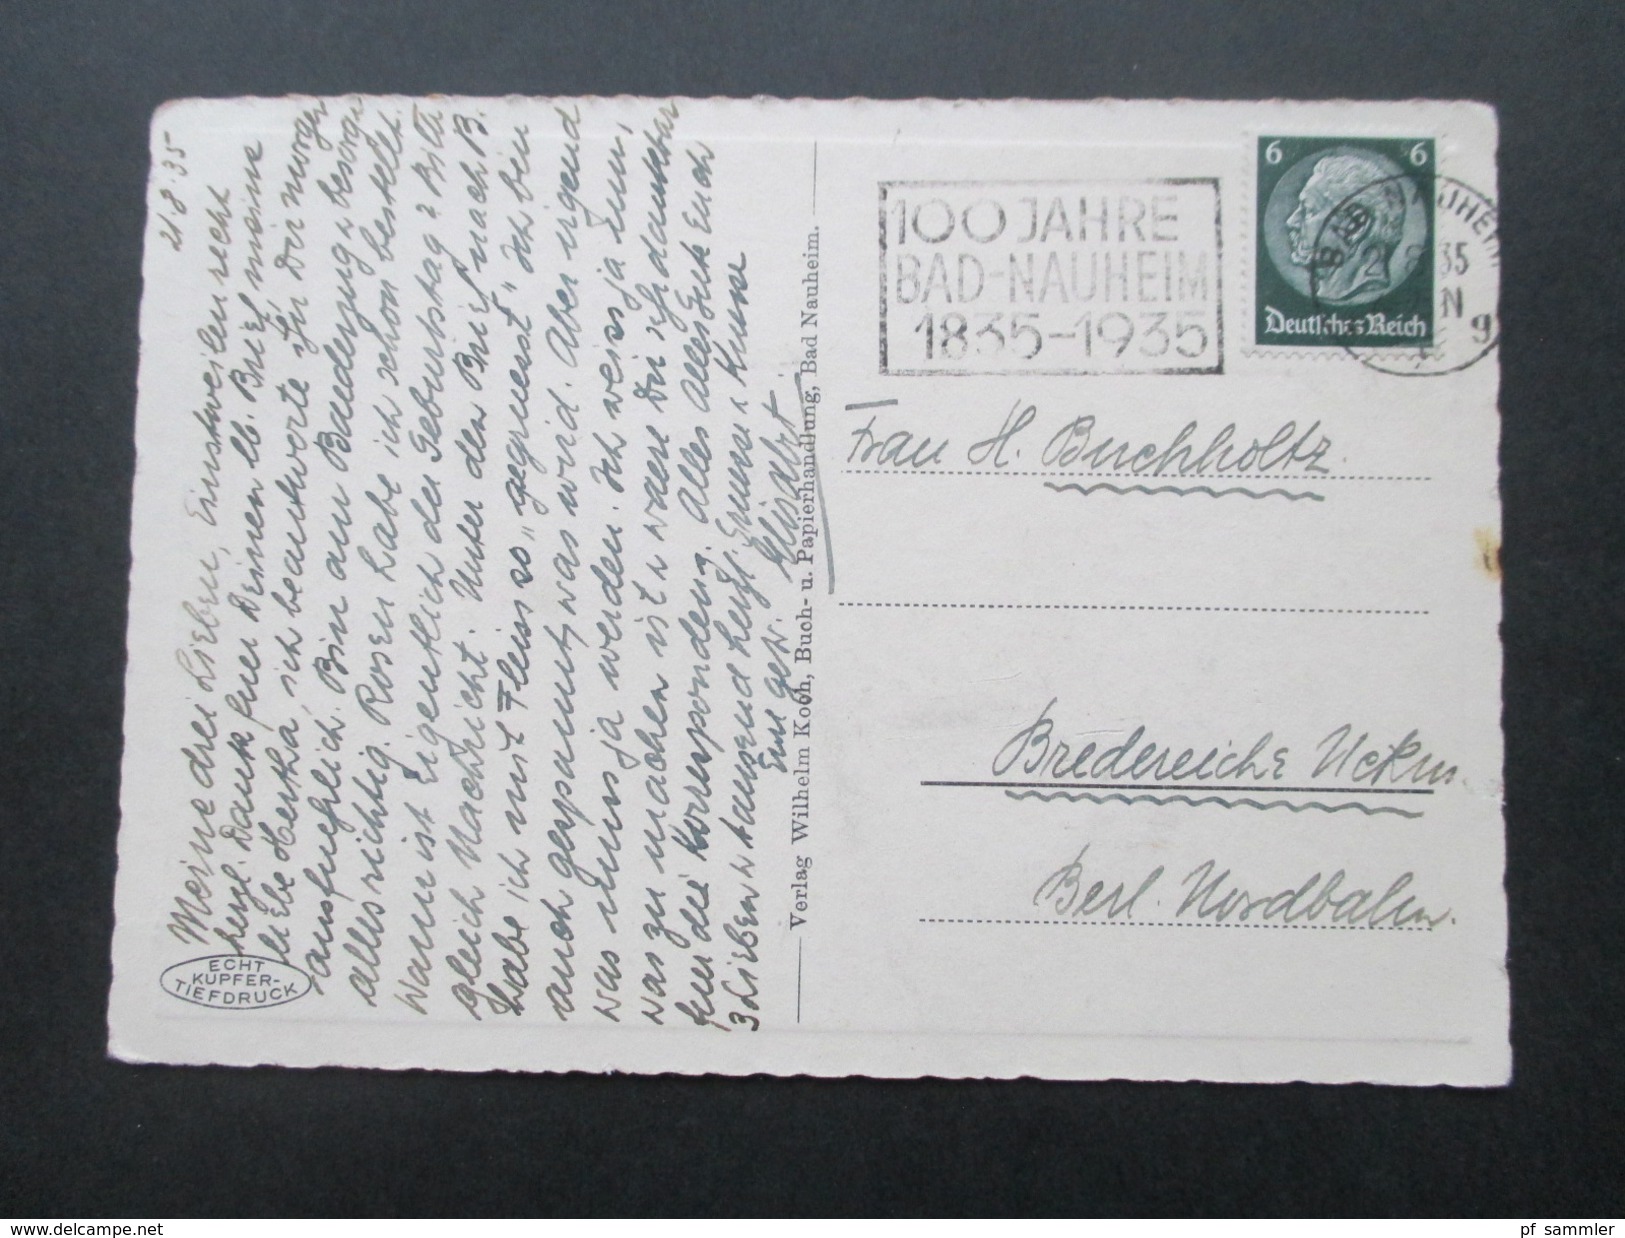 21.8.35
Meine drei Lieben, Einstweilen recht
herzl. Dank fuer Deinen lb. Brief, meine
liebe Hertha, ich beantworte ihn Dir morgen
ausfuehrlich. Bin am Baederzug u. besorge
alles richtig. Rosen habe ich schon bestellt.
Wann ist eigentlich der Geburtstag? Bitte
gleich Nachricht. Unter den Brief nach B.
habe ich mit Fleiss so "gegruesst" Ich bin
auch gespannt, was wird. Aber irgend
was muss ja werden. Ich weiss ja kaum,
was zu machen ist u. waere Dir sehr dankbar
fuer die Korrespondenz. Alles alles Gute Euch
3 Lieben u. tausend herzl. Gruesse u. Kuesse
Eure getr. Elisabet
ECHT
KUPFER-
TIEFDRUCK
Verlag Wilhelm Koch, Buch- u. Papierhandlung, Bad Nauheim.
100 JAHRE
BAD-NAUHEIM
1835-1935
6 6
Deutsches Reich
BAD NAUHEIM
35
N
g
Frau H. Buchholtz.
Bredereiche Uckm.
Berl. Nordbahn.
pf_sammler
© delcampe.net